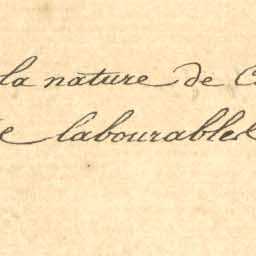 la nature de
labourables